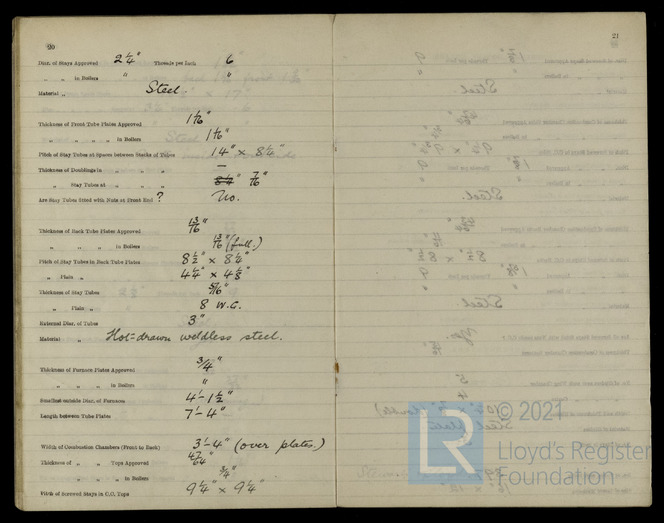 20
Diar. of Stays Approved 2 1/4" Threads per Inch 6
" " in Boilers " "
Material " Steel
Thickness of Front Tube Plates Approved 1 1/16"
" " " " in Boilers 1 1/16"
Pitch of Stay Tubes at Spaces between Stacks of Tubes 14" × 8 1/4"
Thickness of Doublings in " " " —
" Stay Tubes at " " " 7/16"
Are Stay Tubes fitted with Nuts at Front End ? No.
Thickness of Back Tube Plates Approved 13/16"
" " " " in Boilers 13/16" (full.)
Pitch of Stay Tubes in Back Tube Plates 8 1/2" × 8 1/4"
" Plain " 4 1/4" × 4 1/8"
Thickness of Stay Tubes 5/16"
" Plain " 8 W.G.
External Diar. of Tubes 3"
Material " Hot-drawn weldless steel.
Thickness of Furnace Plates Approved 3/4"
" " " in Boilers "
Smallest outside Diar. of Furnaces 4'-1 1/2"
Length between Tube Plates 7'-4"
Width of Combustion Chambers (Front to Back) 3'-4" (over plates.)
Thickness of " " Tops Approved 47/64"
" " " " in Boilers 3/4"
Pitch of Screwed Stays in C.C. Tops 9 1/4" × 9 1/4"
21
LR
© 2021
Lloyd's Register
Foundation